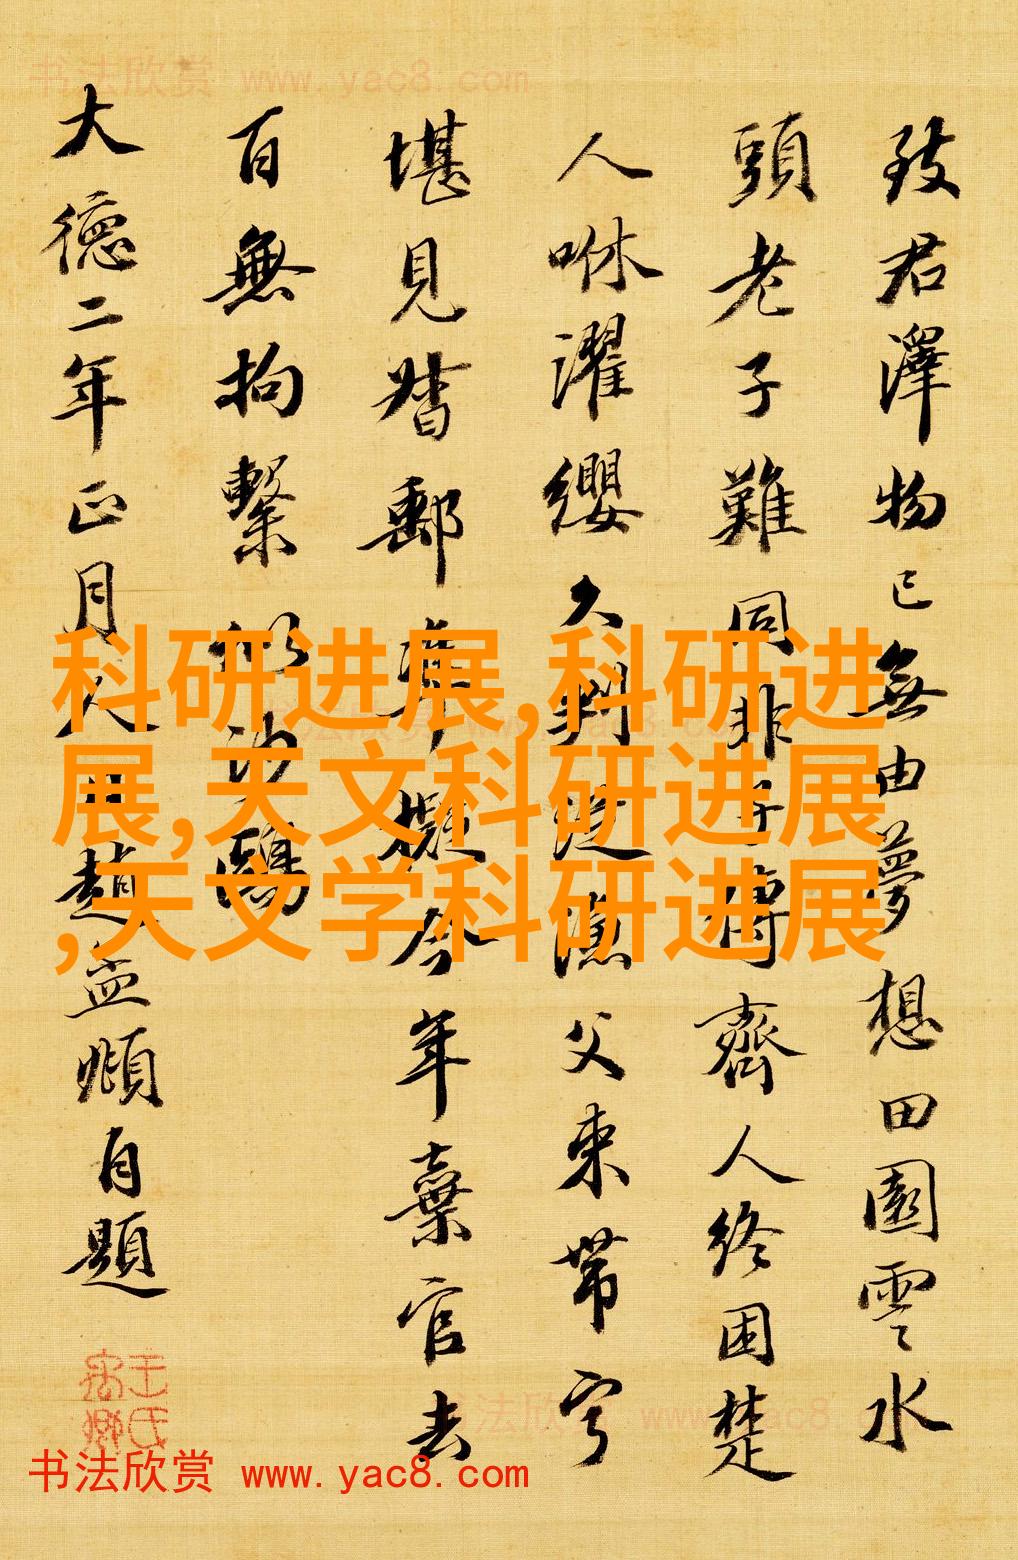 致君澤物已無由夢想田園雲水
頭老子難同非子傳齊人終困楚
人咻濯纓久判從漁父束帶寧
堪見督郵準擬今年棄官去
百無拘繫似沙鷗
大德二年正月人日趙孟頫自題
科研进展,科研进
展,天文科研进展
,天文学科研进展
书法欣赏 www.yac8.com
书法欣赏 www.yac8.com